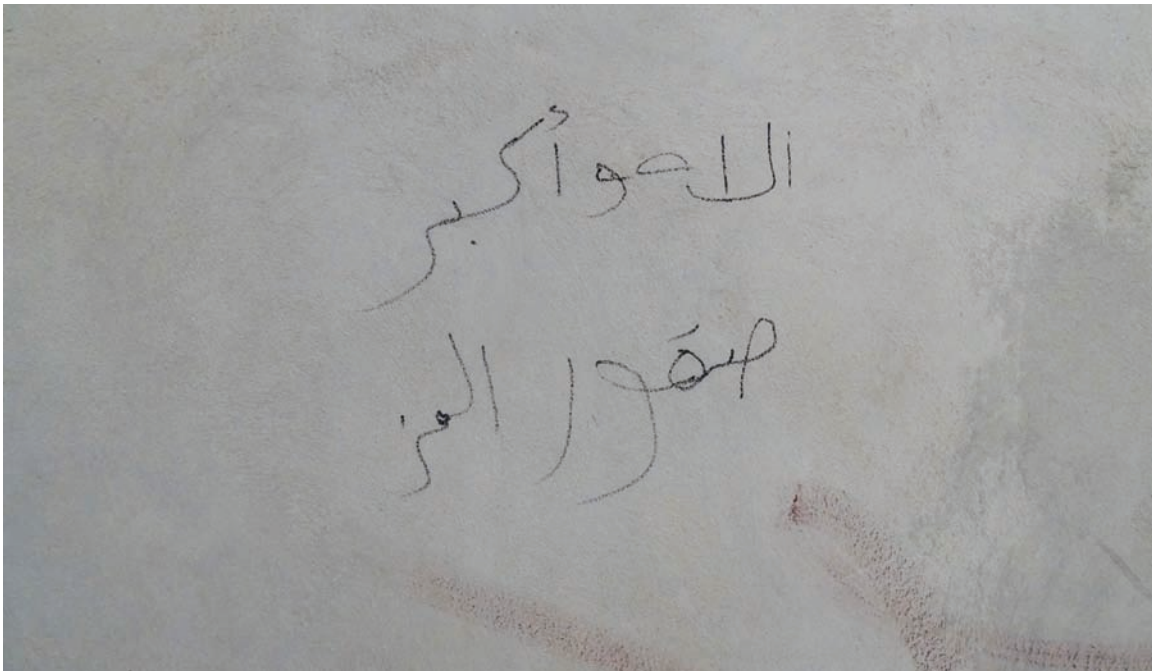 الاهو أكبر
صقور المز